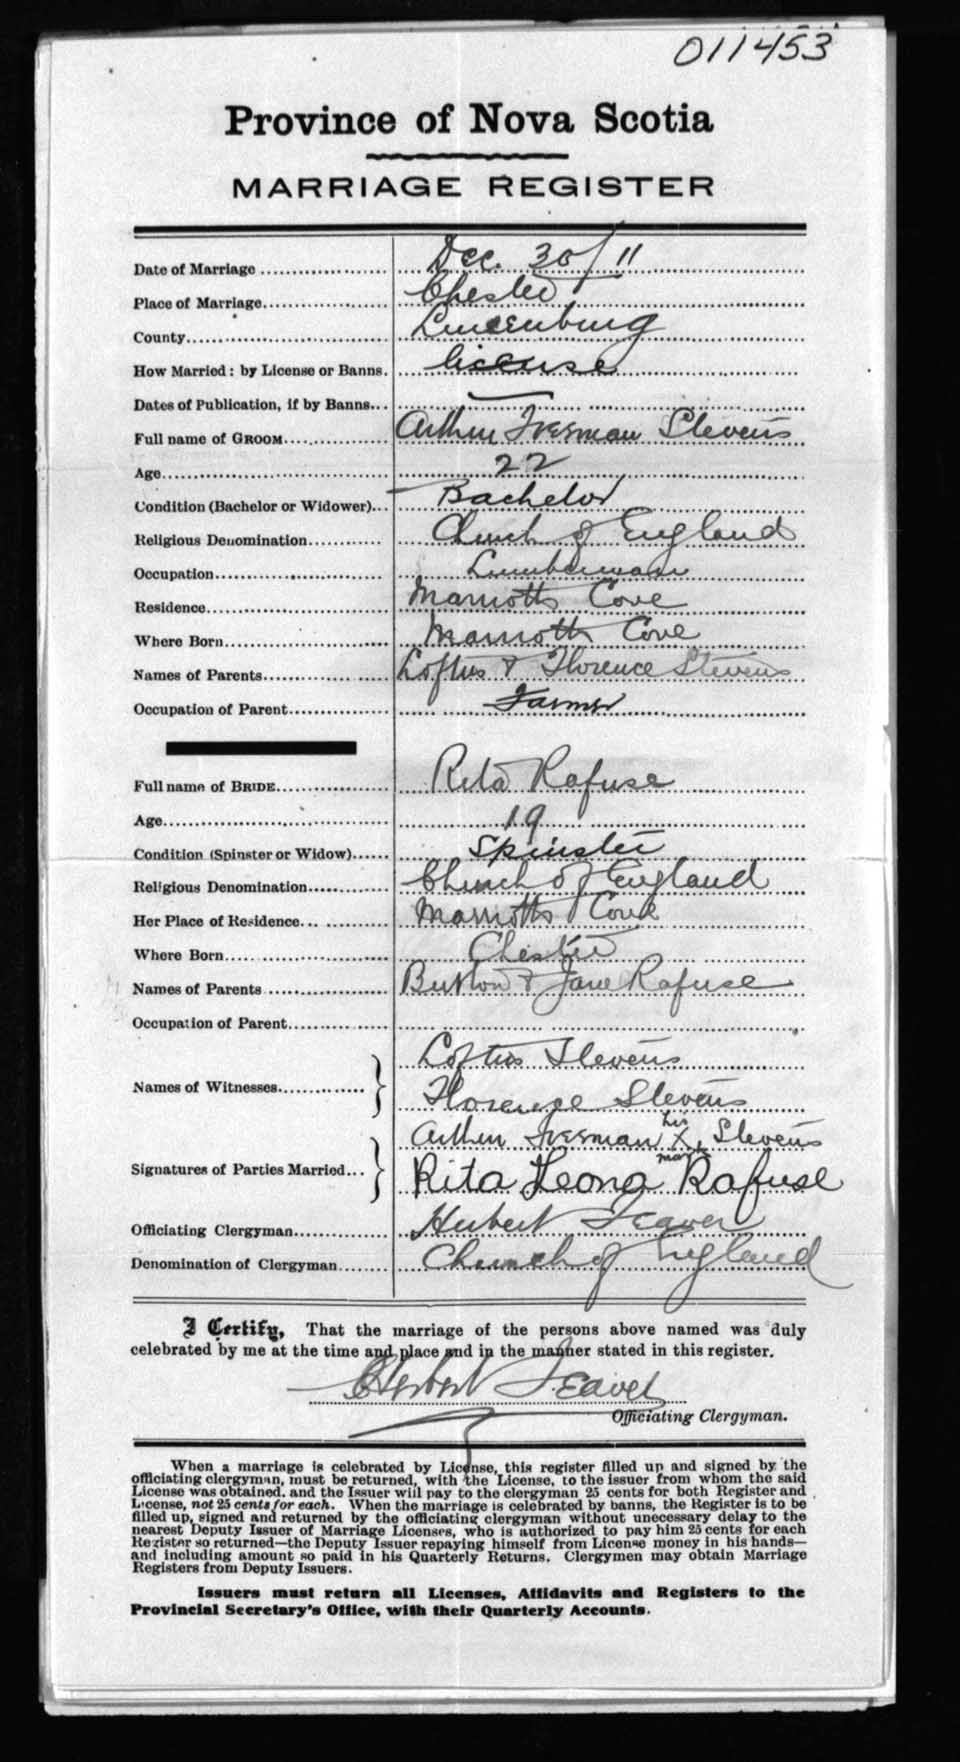 011453
Province of Nova Scotia
MARRIAGE REGISTER
Date of Marriage Dec. 30/11
Place of Marriage Chester
County Lunenburg
How Married: by License or Banns. license
Dates of Publication, if by Banns —
Full name of GROOM Arthur Freeman Stevens
Age 22
Condition (Bachelor or Widower) Bachelor
Religious Denomination Church of England
Occupation Lumberman
Residence Marriotts Cove
Where Born Marriotts Cove
Names of Parents Loftus & Florence Stevens
Occupation of Parent Farmer
Full name of BRIDE Rita Rafuse
Age 19
Condition (Spinster or Widow) Spinster
Religious Denomination Church of England
Her Place of Residence Marriotts Cove
Where Born Chester
Names of Parents Burton & Jane Rafuse
Occupation of Parent
Loftus Stevens
Names of Witnesses
Florence Stevens
Arthur Freeman his X mark Stevens
Signatures of Parties Married
Rita Leona Rafuse
Officiating Clergyman Herbert
Denomination of Clergyman Church of England
I Certify, That the marriage of the persons above named was duly
celebrated by me at the time and place and in the manner stated in this register.
Herbert
Officiating Clergyman.
When a marriage is celebrated by License, this register filled up and signed by the
officiating clergyman, must be returned, with the License, to the issuer from whom the said
License was obtained, and the Issuer will pay to the clergyman 25 cents for both Register and
License, not 25 cents for each. When the marriage is celebrated by banns, the Register is to be
filled up, signed and returned by the officiating clergyman without unnecessary delay to the
nearest Deputy Issuer of Marriage Licenses, who is authorized to pay him 25 cents for each
Register so returned—the Deputy Issuer repaying himself from License money in his hands—
and including amount so paid in his Quarterly Returns. Clergymen may obtain Marriage
Registers from Deputy Issuers.
Issuers must return all Licenses, Affidavits and Registers to the
Provincial Secretary's Office, with their Quarterly Accounts.